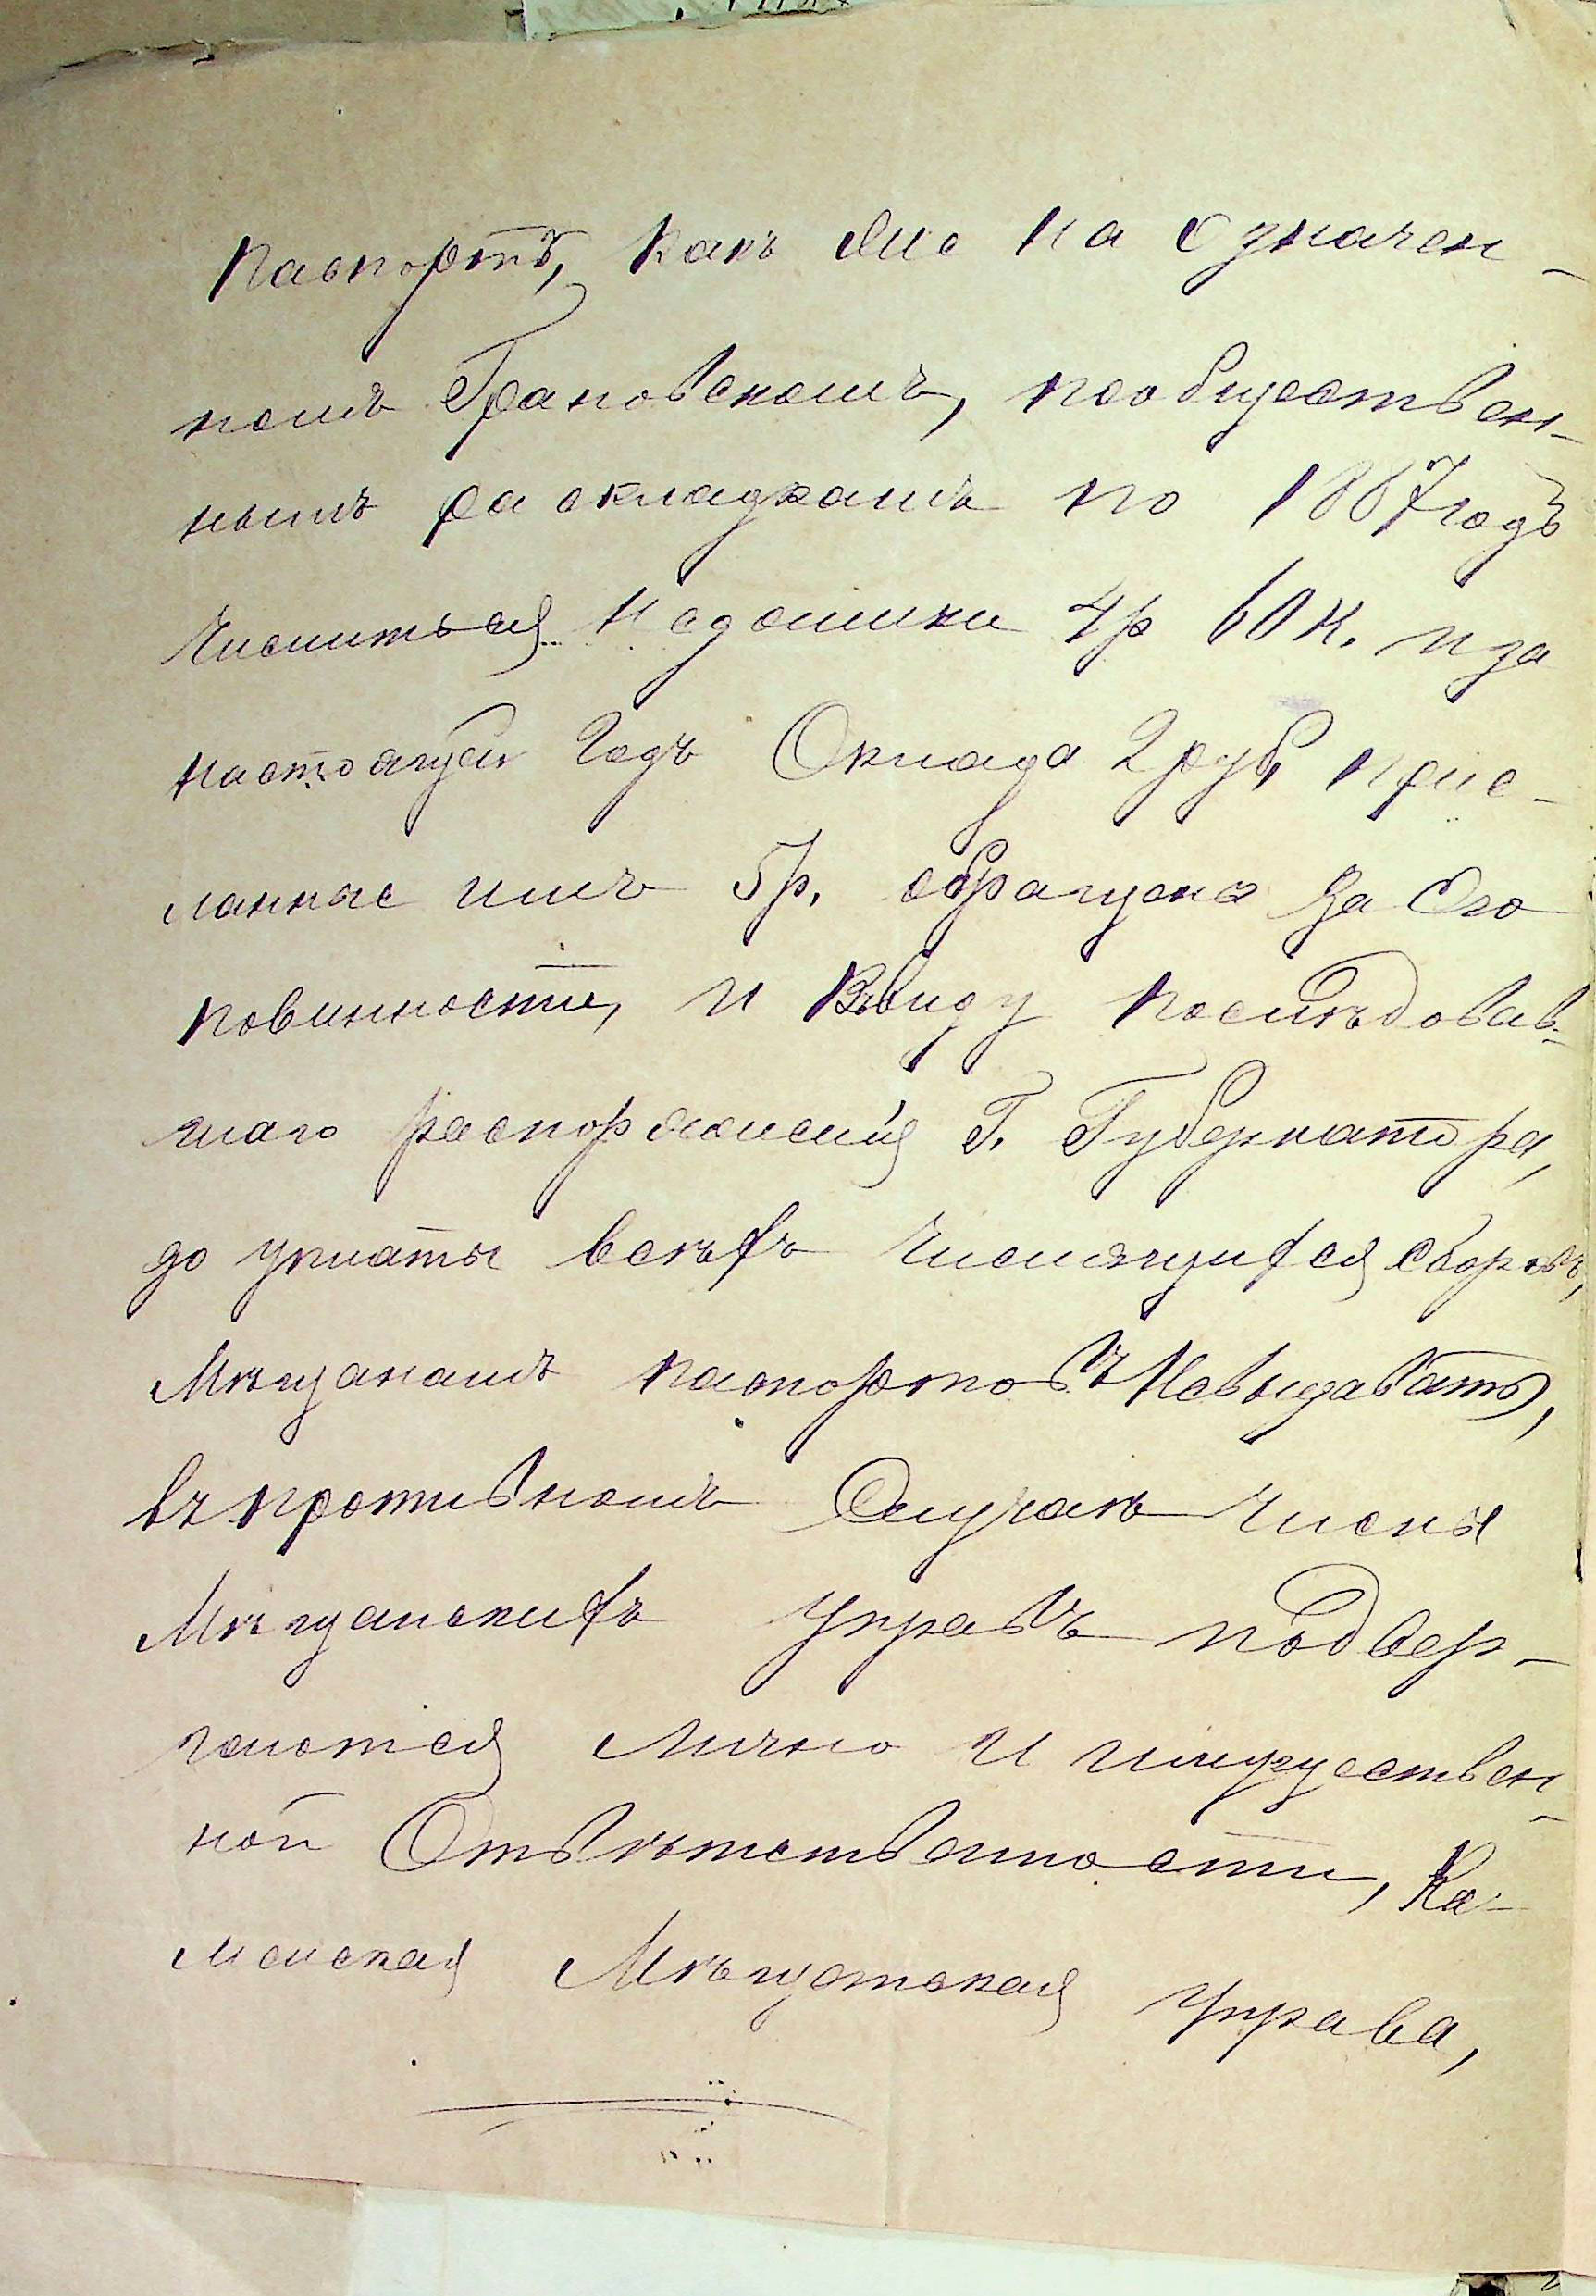 паспортъ, какъ же на означен-
номъ Грановскомъ, пообществен-
нымъ раскладкамъ по 1887 годъ
числиться недоимки 4р 60 к. и за
настоящей годъ Оклада 2 руб, прис-
ланные имъ 5р. обращены за Его
повинности, и Ввиду послѣдовав-
шаго распоряженія Г. Губернатора,
до уплаты всѣхъ числящихся сборовъ,
Мѣщанамъ паспортовъ Невыдавать,
въ противномъ Случаѣ Члены
Мѣщанскихъ Управъ подвер-
гаются лично и имуществен-
ной Отвѣтственности, Ка-
менская Мѣщанская Управа,